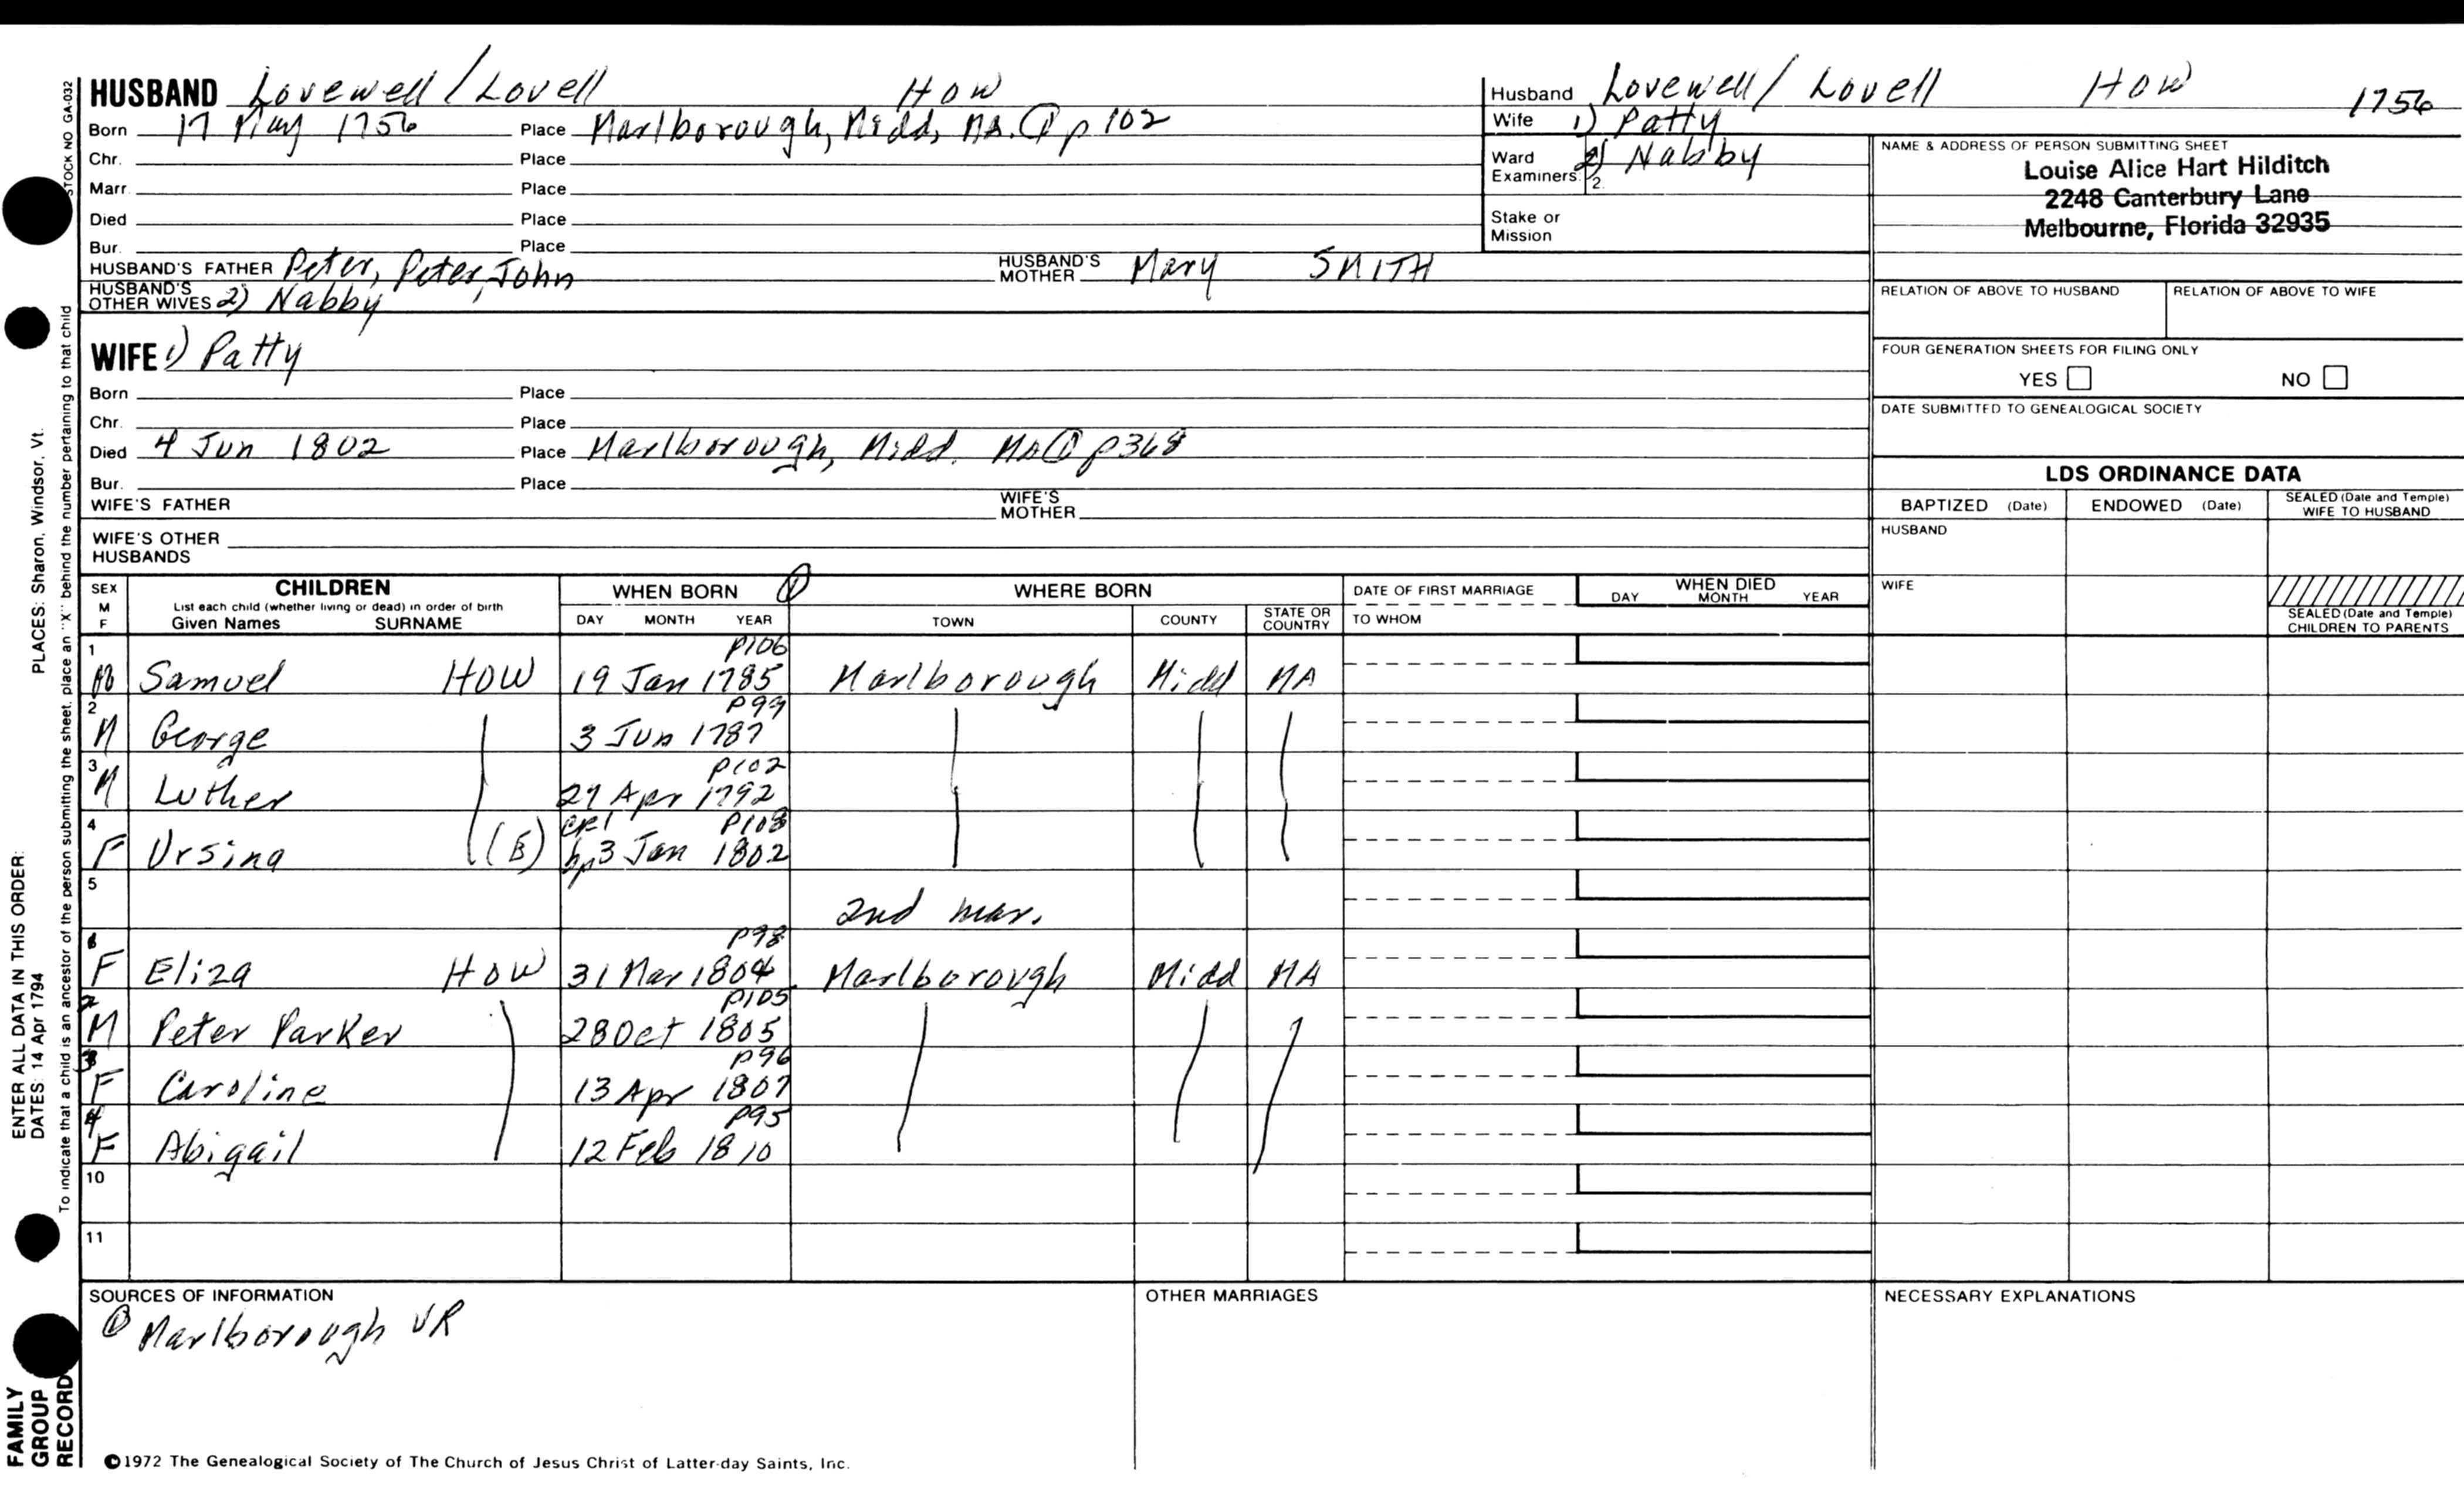 HUSBAND Lovewell / Lovell HOW
Born 17 May 1756 Place Marlborough, Midd, MA. ① p 102
Chr. Place
Marr. Place
Died Place
Bur. Place
HUSBAND'S FATHER Peter, Peter, John HUSBAND'S MOTHER Mary SMITH
HUSBAND'S OTHER WIVES 2) Nabby
WIFE 1) Patty
Born Place
Chr. Place
Died 4 Jun 1802 Place Marlborough, Midd. MA ① p368
Bur. Place
WIFE'S FATHER WIFE'S MOTHER
WIFE'S OTHER HUSBANDS
Husband Lovewell / Lovell HOW 1756
Wife 1) Patty
Ward Examiners: 2) Nabby
2.
Stake or Mission
NAME & ADDRESS OF PERSON SUBMITTING SHEET
Louise Alice Hart Hilditch
2248 Canterbury Lane
Melbourne, Florida 32935
RELATION OF ABOVE TO HUSBAND RELATION OF ABOVE TO WIFE
FOUR GENERATION SHEETS FOR FILING ONLY
YES NO
DATE SUBMITTED TO GENEALOGICAL SOCIETY
LDS ORDINANCE DATA
BAPTIZED (Date) ENDOWED (Date) SEALED (Date and Temple) WIFE TO HUSBAND
HUSBAND
WIFE
SEALED (Date and Temple) CHILDREN TO PARENTS
SEX M F CHILDREN WHEN BORN ① WHERE BORN DATE OF FIRST MARRIAGE WHEN DIED
List each child (whether living or dead) in order of birth
Given Names SURNAME DAY MONTH YEAR TOWN COUNTY STATE OR COUNTRY TO WHOM DAY MONTH YEAR
1 p106
M Samuel HOW 19 Jan 1785 Marlborough Midd MA
2 p99
M George 3 Jun 1787
3 p102
M Luther 27 Apr 1792
4 CR1 p108
F Ursina (B) bp 3 Jan 1802
5
2nd mar.
1 p98
F Eliza HOW 31 Mar 1804 Marlborough Midd MA
2 p105
M Peter Parker 28 Oct 1805
3 p96
F Caroline 13 Apr 1807
4 p95
F Abigail 12 Feb 1810
10
11
SOURCES OF INFORMATION
① Marlborough VR
OTHER MARRIAGES
NECESSARY EXPLANATIONS
©1972 The Genealogical Society of The Church of Jesus Christ of Latter-day Saints, Inc.
STOCK NO GA-032
To indicate that a child is an ancestor of the person submitting the sheet, place an "X" behind the number pertaining to that child
PLACES: Sharon, Windsor, Vt.
ENTER ALL DATA IN THIS ORDER:
DATES: 14 Apr 1794
FAMILY
GROUP
RECORD